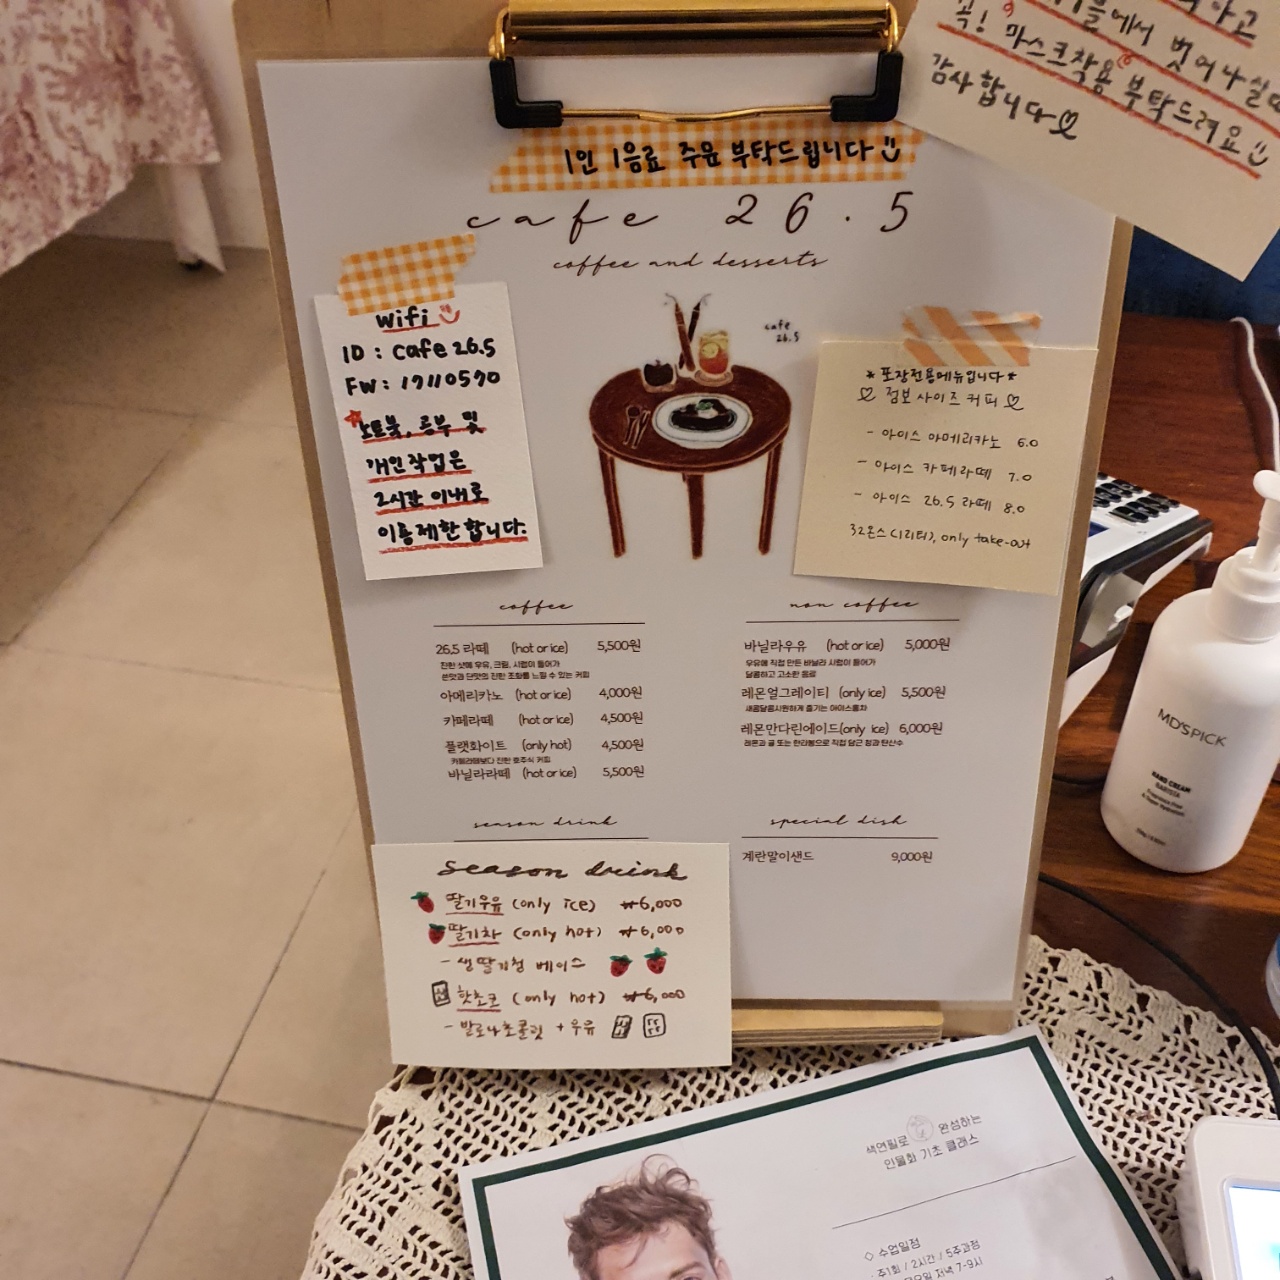 꼭! 마스크착용 부탁드려요
감사합니다
1인 1음료 주문 부탁드립니다
cafe 26.5
coffee and desserts
cafe
26.5
wifi
ID : cafe 26.5
PW : 17110590
노트북, 공부 및
개인작업은
2시간 이내로
이용제한합니다.
*포장전용메뉴입니다*
점보 사이즈 커피
- 아이스 아메리카노 6.0
- 아이스 카페라떼 7.0
- 아이스 26.5 라떼 8.0
32온스(1리터), only take-out
coffee
26.5 라떼 (hot or ice) 5,500원
진한 샷에 우유, 크림, 시럽이 들어가
쓴맛과 단맛의 진한 조화를 느낄 수 있는 커피
아메리카노 (hot or ice) 4,000원
카페라떼 (hot or ice) 4,500원
플랫화이트 (only hot) 4,500원
카페라떼보다 진한 호주식 커피
바닐라라떼 (hot or ice) 5,500원
non coffee
바닐라우유 (hot or ice) 5,000원
우유에 직접 만든 바닐라 시럽이 들어가
달콤하고 고소한 음료
레몬얼그레이티 (only ice) 5,500원
새콤달콤시원하게 즐기는 아이스홍차
레몬만다린에이드(only ice) 6,000원
레몬과 귤 또는 한라봉으로 직접 담근 청과 탄산수
season drink
season drink
딸기우유 (only ice) ₩6,000
딸기차 (only hot) ₩6,000
- 생딸기청 베이스
핫초코 (only hot) ₩6,000
- 발로나초콜릿 + 우유
special dish
계란말이샌드 9,000원
MD'SPICK
HAND CREAM
BARISTA
색연필로 완성하는
인물화 기초 클래스
◇ 수업일정
· 주1회 / 2시간 / 5주과정
저녁 7-9시